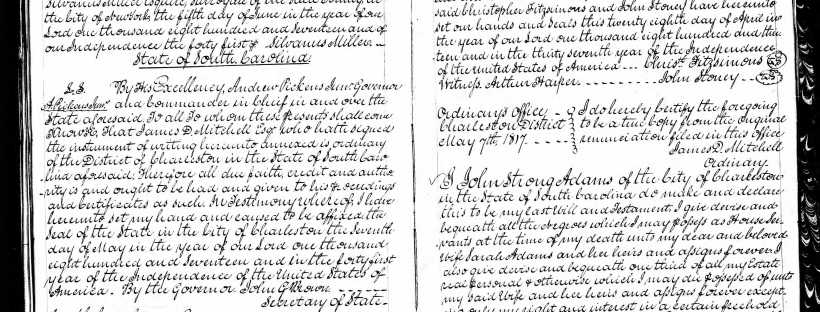 Silvanus Miller Esquire Surrogate of the said County at
the City of New York the fifth day of June in the year of our
Lord one thousand eight hundred and Seventeen and of
our Independence the forty first & Silvanus Miller.
State of South Carolina.
L.S. By His Excellency, Andrew Pickens Junr Governor
A. Pickens Junr and Commander in Chief in and over the
State aforesaid. To all To whom these Presents shall come
Know Ye, That James D. Mitchell Esqr who hath signed
the instrument of writing hereunto annexed is Ordinary
of the District of Charleston in the State of South Caro
lina aforesaid, Therefore all due faith, credit and autho
rity is and ought to be had and given to his proceedings
and Certificates as such. In Testimony whereof, I have
hereunto set my hand and caused to be affixed the
Seal of the State in the City of Charleston the Seventh
day of May in the year of our Lord one thousand
eight hundred and Seventeen and in the forty first
year of the Independence of the United States of
America - By the Governor John G Brown
Secretary of State
said Christopher Fitzsimons and John Stoney have hereunto
set our hands and seals this twenty eighth day of April in
the year of our Lord one thousand eight hundred and thir
teen and in the thirty seventh year of the Independence
of the United States of America - Christr Fitzsimons
Witness. Arthur Harper John Stoney
Ordinary's Office I do hereby certify the foregoing
Charleston District to be a true Copy from the Original
May 7th, 1817. renunciation filed in this Office
James D. Mitchell
Ordinary.
I John Strong Adams of the City of Charleston
in the State of South Carolina do make and declare
this to be my last Will and Testament, I give devise and
bequeath all the Negroes which I may possess as House Ser
vants at the time of my death unto my dear and beloved
Wife Sarah Adams and her heirs and assigns forever. I
also give devise and bequeath one third of all my Estate
real personal & otherwise which I may die possessed of unto
my said Wife and her heirs and assigns forever except
only my right and interest in a certain freehold